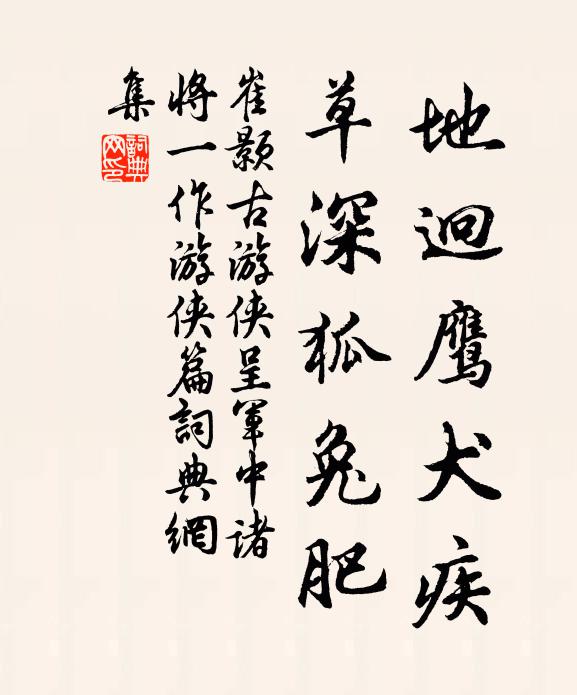 地迥鷹犬疾
草深狐兔肥
崔顥古游俠呈軍中諸
將一作游俠篇詞典網
集
詞典網印